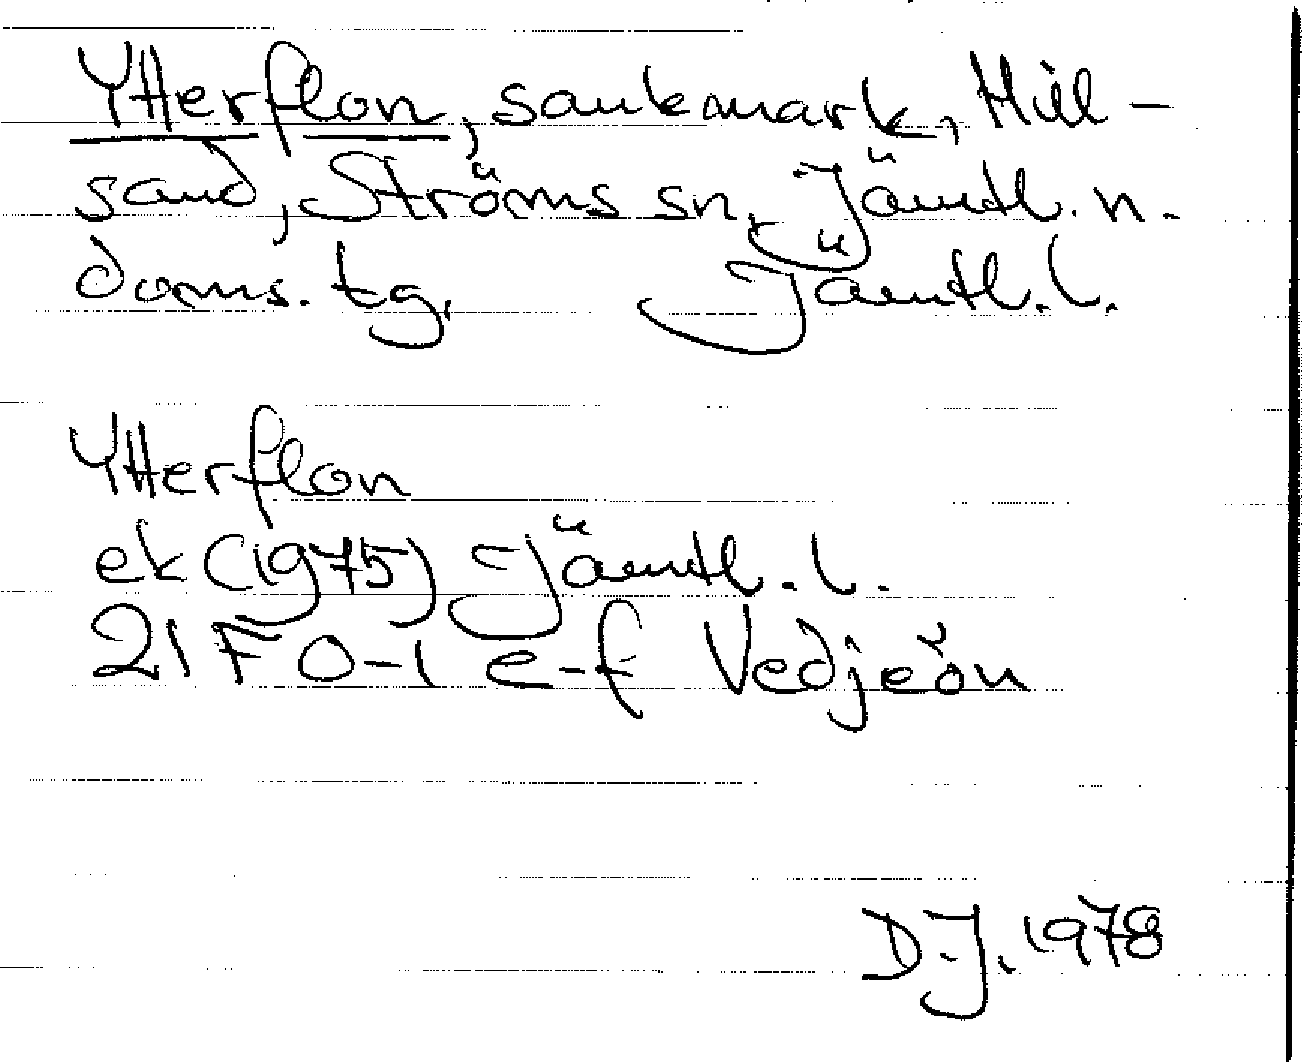 Ytterflon, sankmark, Hill-
sand, Ströms sn, Jämtl. n.
doms. tg. Jämtl. l.
Ytterflon
ek (1975) Jämtl. l.
21 F 0-1 e-f Vedjeön
D.J. 1978